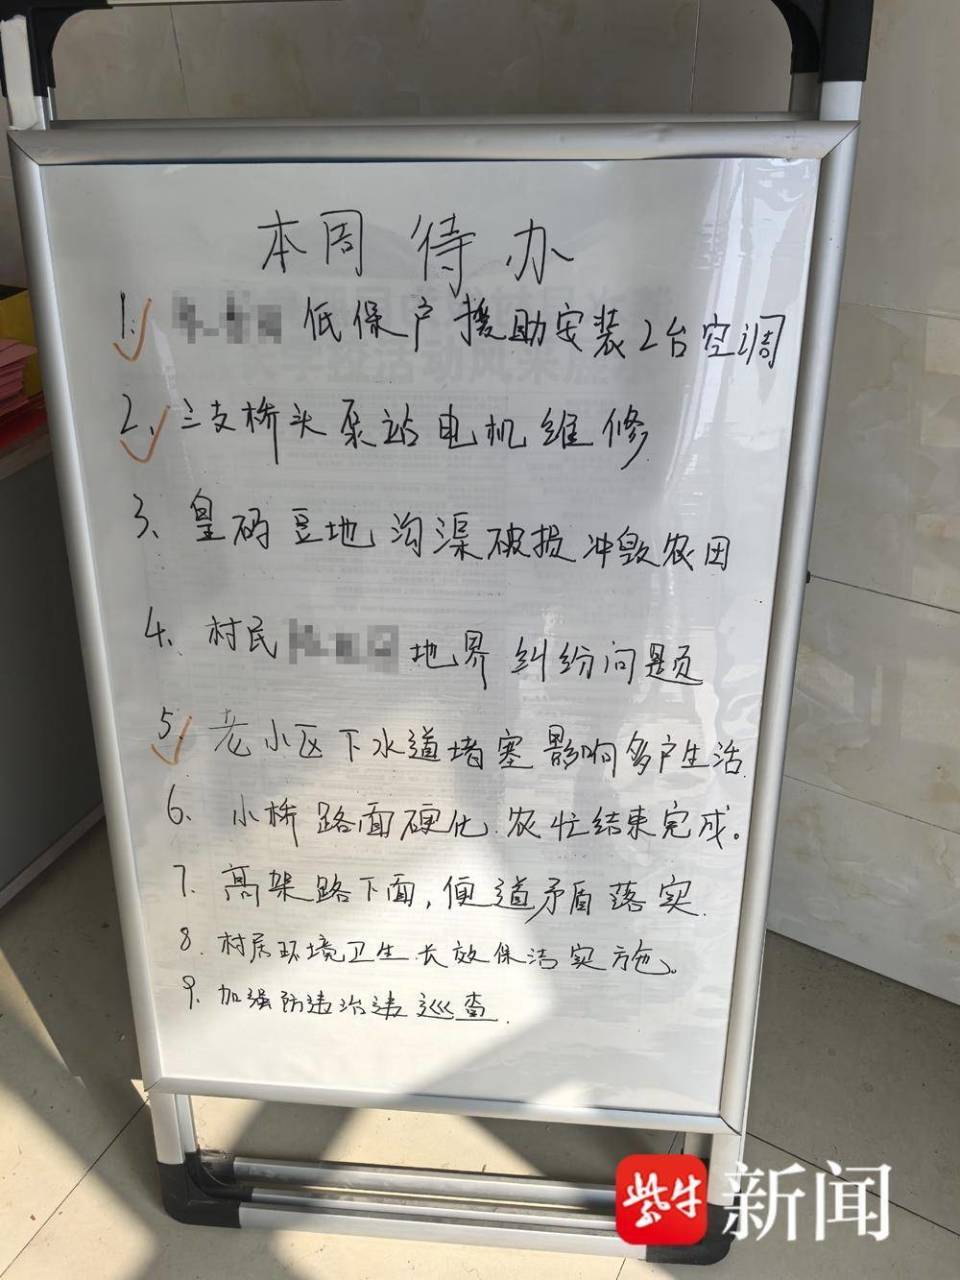 本周待办
1. 低保户援助安装2台空调
2、三支桥头泵站电机维修
3、皇码豆地沟渠破损冲毁农田
4、村民 地界纠纷问题
5、老小区下水道堵塞影响多户生活
6、小桥路面硬化.农忙结束完成。
7、高架路下面,便道矛盾落实.
8、村居环境卫生长效保洁实施。
9、加强防违治违巡查.
紫牛新闻